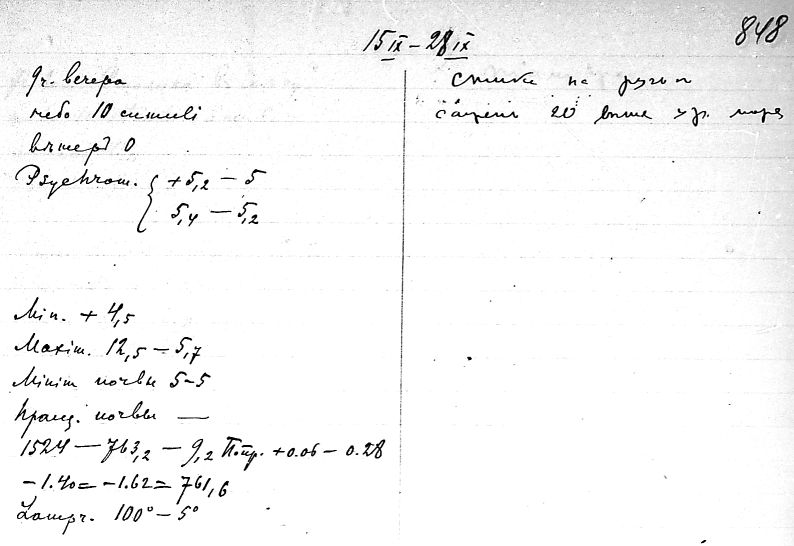 848
15 IX – 28 IX
9 ч. вечера
небо 10 cumuli
вѣтеръ 0
Psychrom. { +5,2 – 5
5,4 – 5,2
Min. + 4,5
Maxim. 12,5 – 5,7
Minim почвы 5–5
почвы —
1524 – 763,2 – 9,2 Попр. +0.06 – 0.28
–1.40 = –1.62 = 761,6
100° – 5°
на
20 выше ур. моря